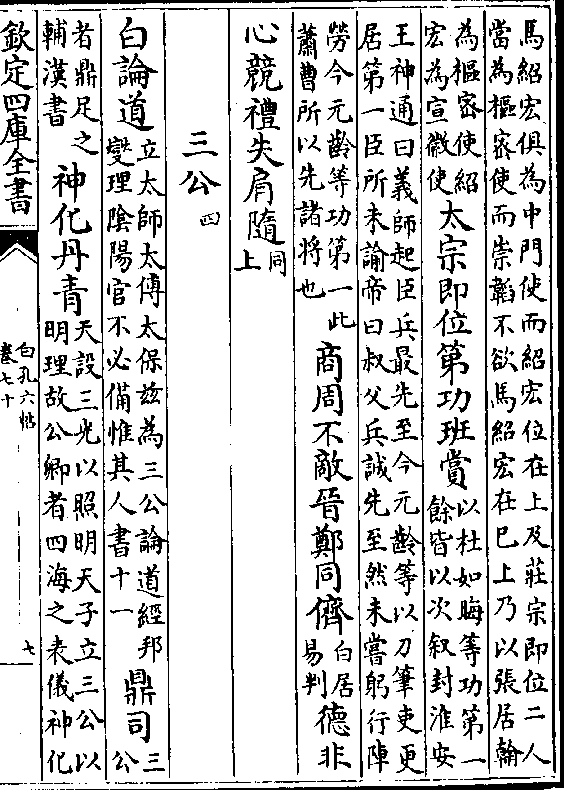 馬紹宏俱為中門使而紹宏位在上及莊宗即位二人
當為樞密使而崇韜不欲馬紹宏在已上乃以張居翰
為樞密使紹
宏為宣徽使
太宗即位第功班賞
以杜如晦等功第一
餘皆以次叙封淮安
王神通曰義師起臣兵最先至今元齡等以刀筆吏更
居第一臣所未諭帝曰叔父兵誠先至然未嘗躬行陣
勞今元齡等功第一此
蕭曹所以先諸将也
商周不敵晉鄭同儕
白居
易判
德非
心競禮失肩隨
同
上
三公
四
白論道
立太師太傅太保兹為三公論道經邦
燮理陰陽官不必備惟其人書十一
鼎司
三
公
者鼎足之
輔漢書
神化丹青
天設三光以照明天子立三公以
明理故公卿者四海之表儀神化
欽定四庫全書
白孔六帖
卷七十
七